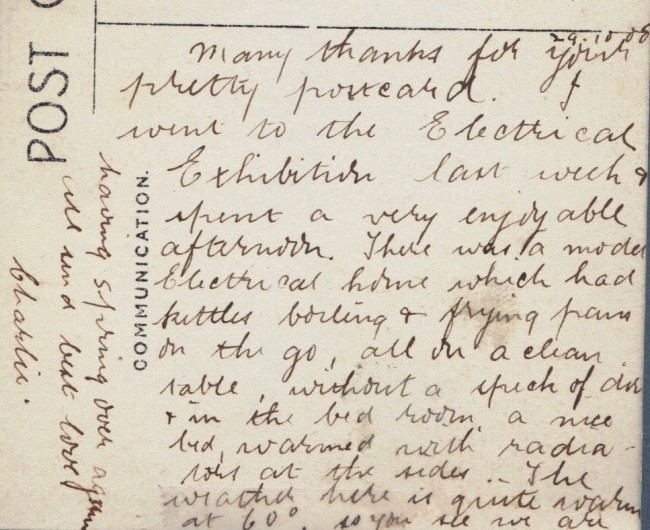 POST C
COMMUNICATION.
29.10.08
Many thanks for your
pretty postcard. I
went to the Electrical
Exhibition last week &
spent a very enjoyable
afternoon. There was a model
Electrical home which had
kettles boiling & frying pans
on the go, all on a clean
table, without a speck of dirt
& in the bed room, a nice
bed, warmed with radia-
tors at the sides.. The
weather here is quite warm
at 60°, so you see we are
having spring over again
All send best love
Charlie.